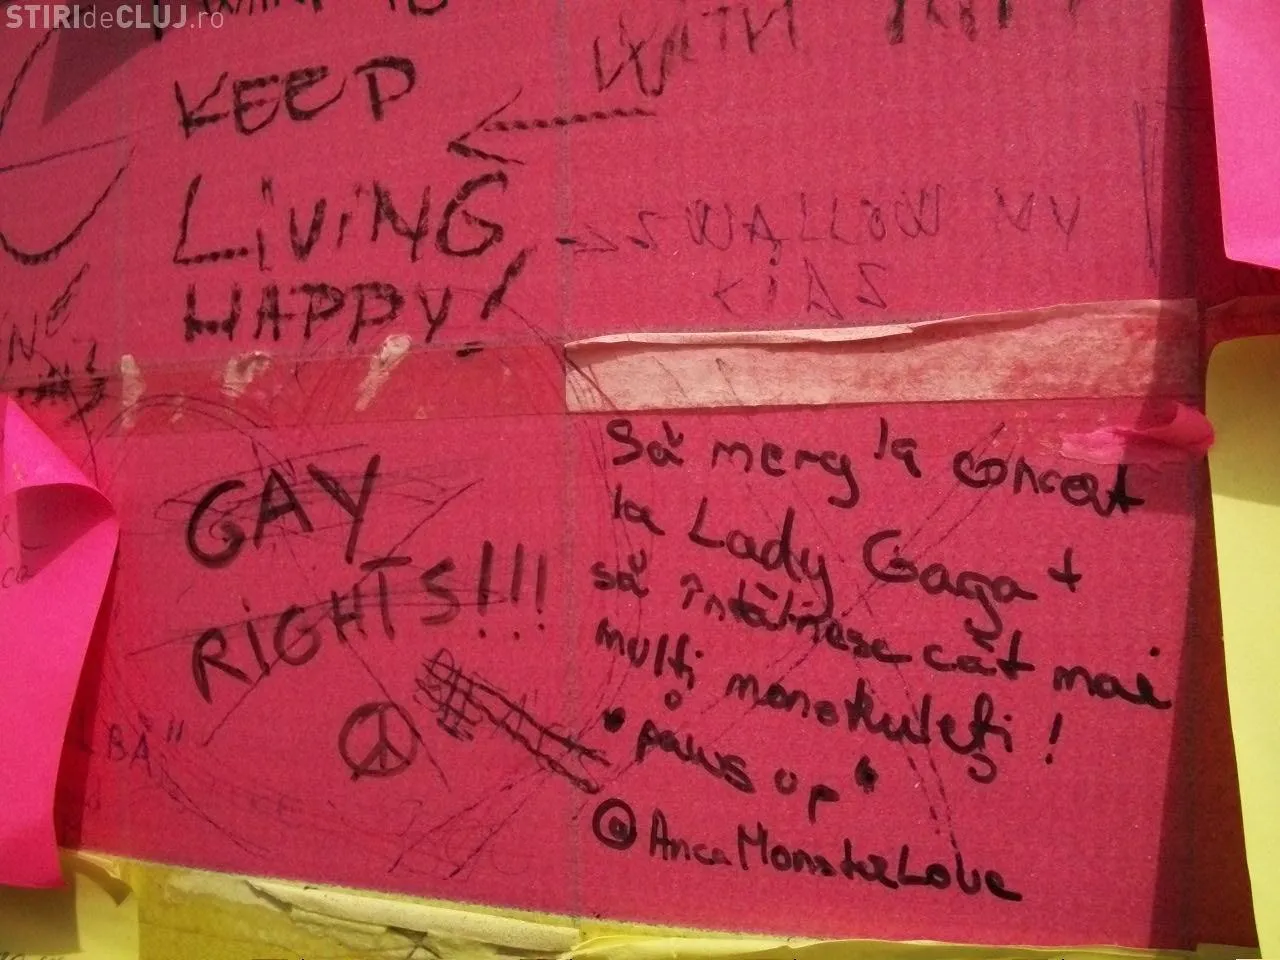 STIRIdeCLUJ.ro
WITH
KEEP
LiViNG
HAPPY!
SWALLOW MY
KiDS
GAY
RiGHTS!!!
BĂ"
Să merg la concert
la Lady Gaga +
să întâlnesc cât mai
mulți monstruleți!
"paws up"
@AncaMonsterLove